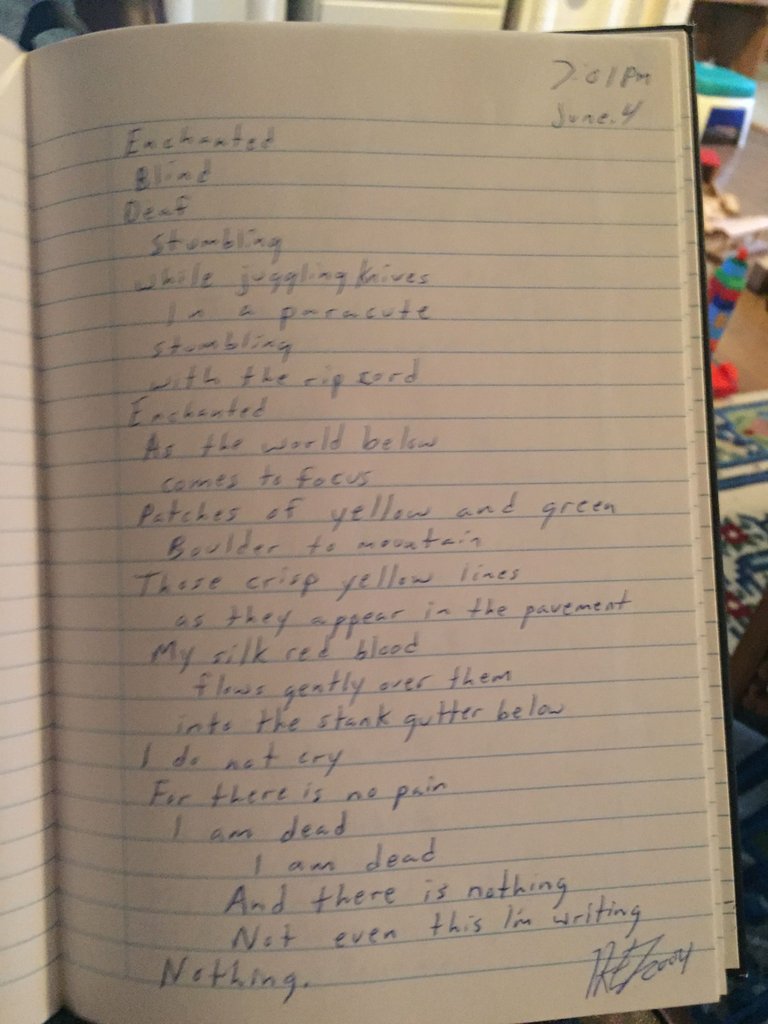 7:01 Pm
June. 4
Enchanted
Blind
Deaf
stumbling
while juggling knives
In a paracute
stumbling
with the rip cord
Enchanted
As the world below
comes to focus
Patches of yellow and green
Boulder to mountain
Those crisp yellow lines
as they appear in the pavement
My silk red blood
flows gently over them
into the stank gutter below
I do not cry
For there is no pain
I am dead
I am dead
And there is nothing
Not even this I'm writing
Nothing.
2004